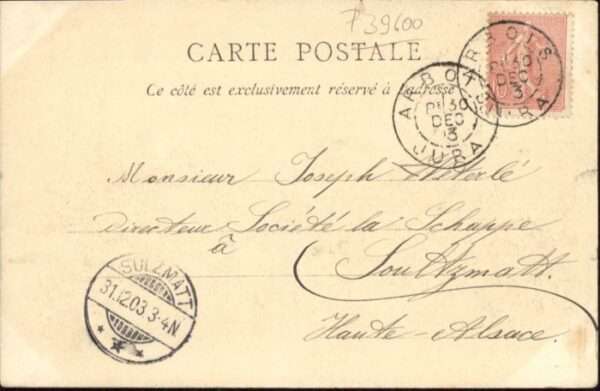 F39600
CARTE POSTALE
Ce côté est exclusivement réservé à l'adresse
ARBOIS
30
DEC
JURA
ARBOIS
30
DEC
03
JURA
Monsieur Joseph
Directeur Société la Schappe
à Soultzmatt.
Haute-Alsace.
SULZMATT
31.12.03 3-4N.